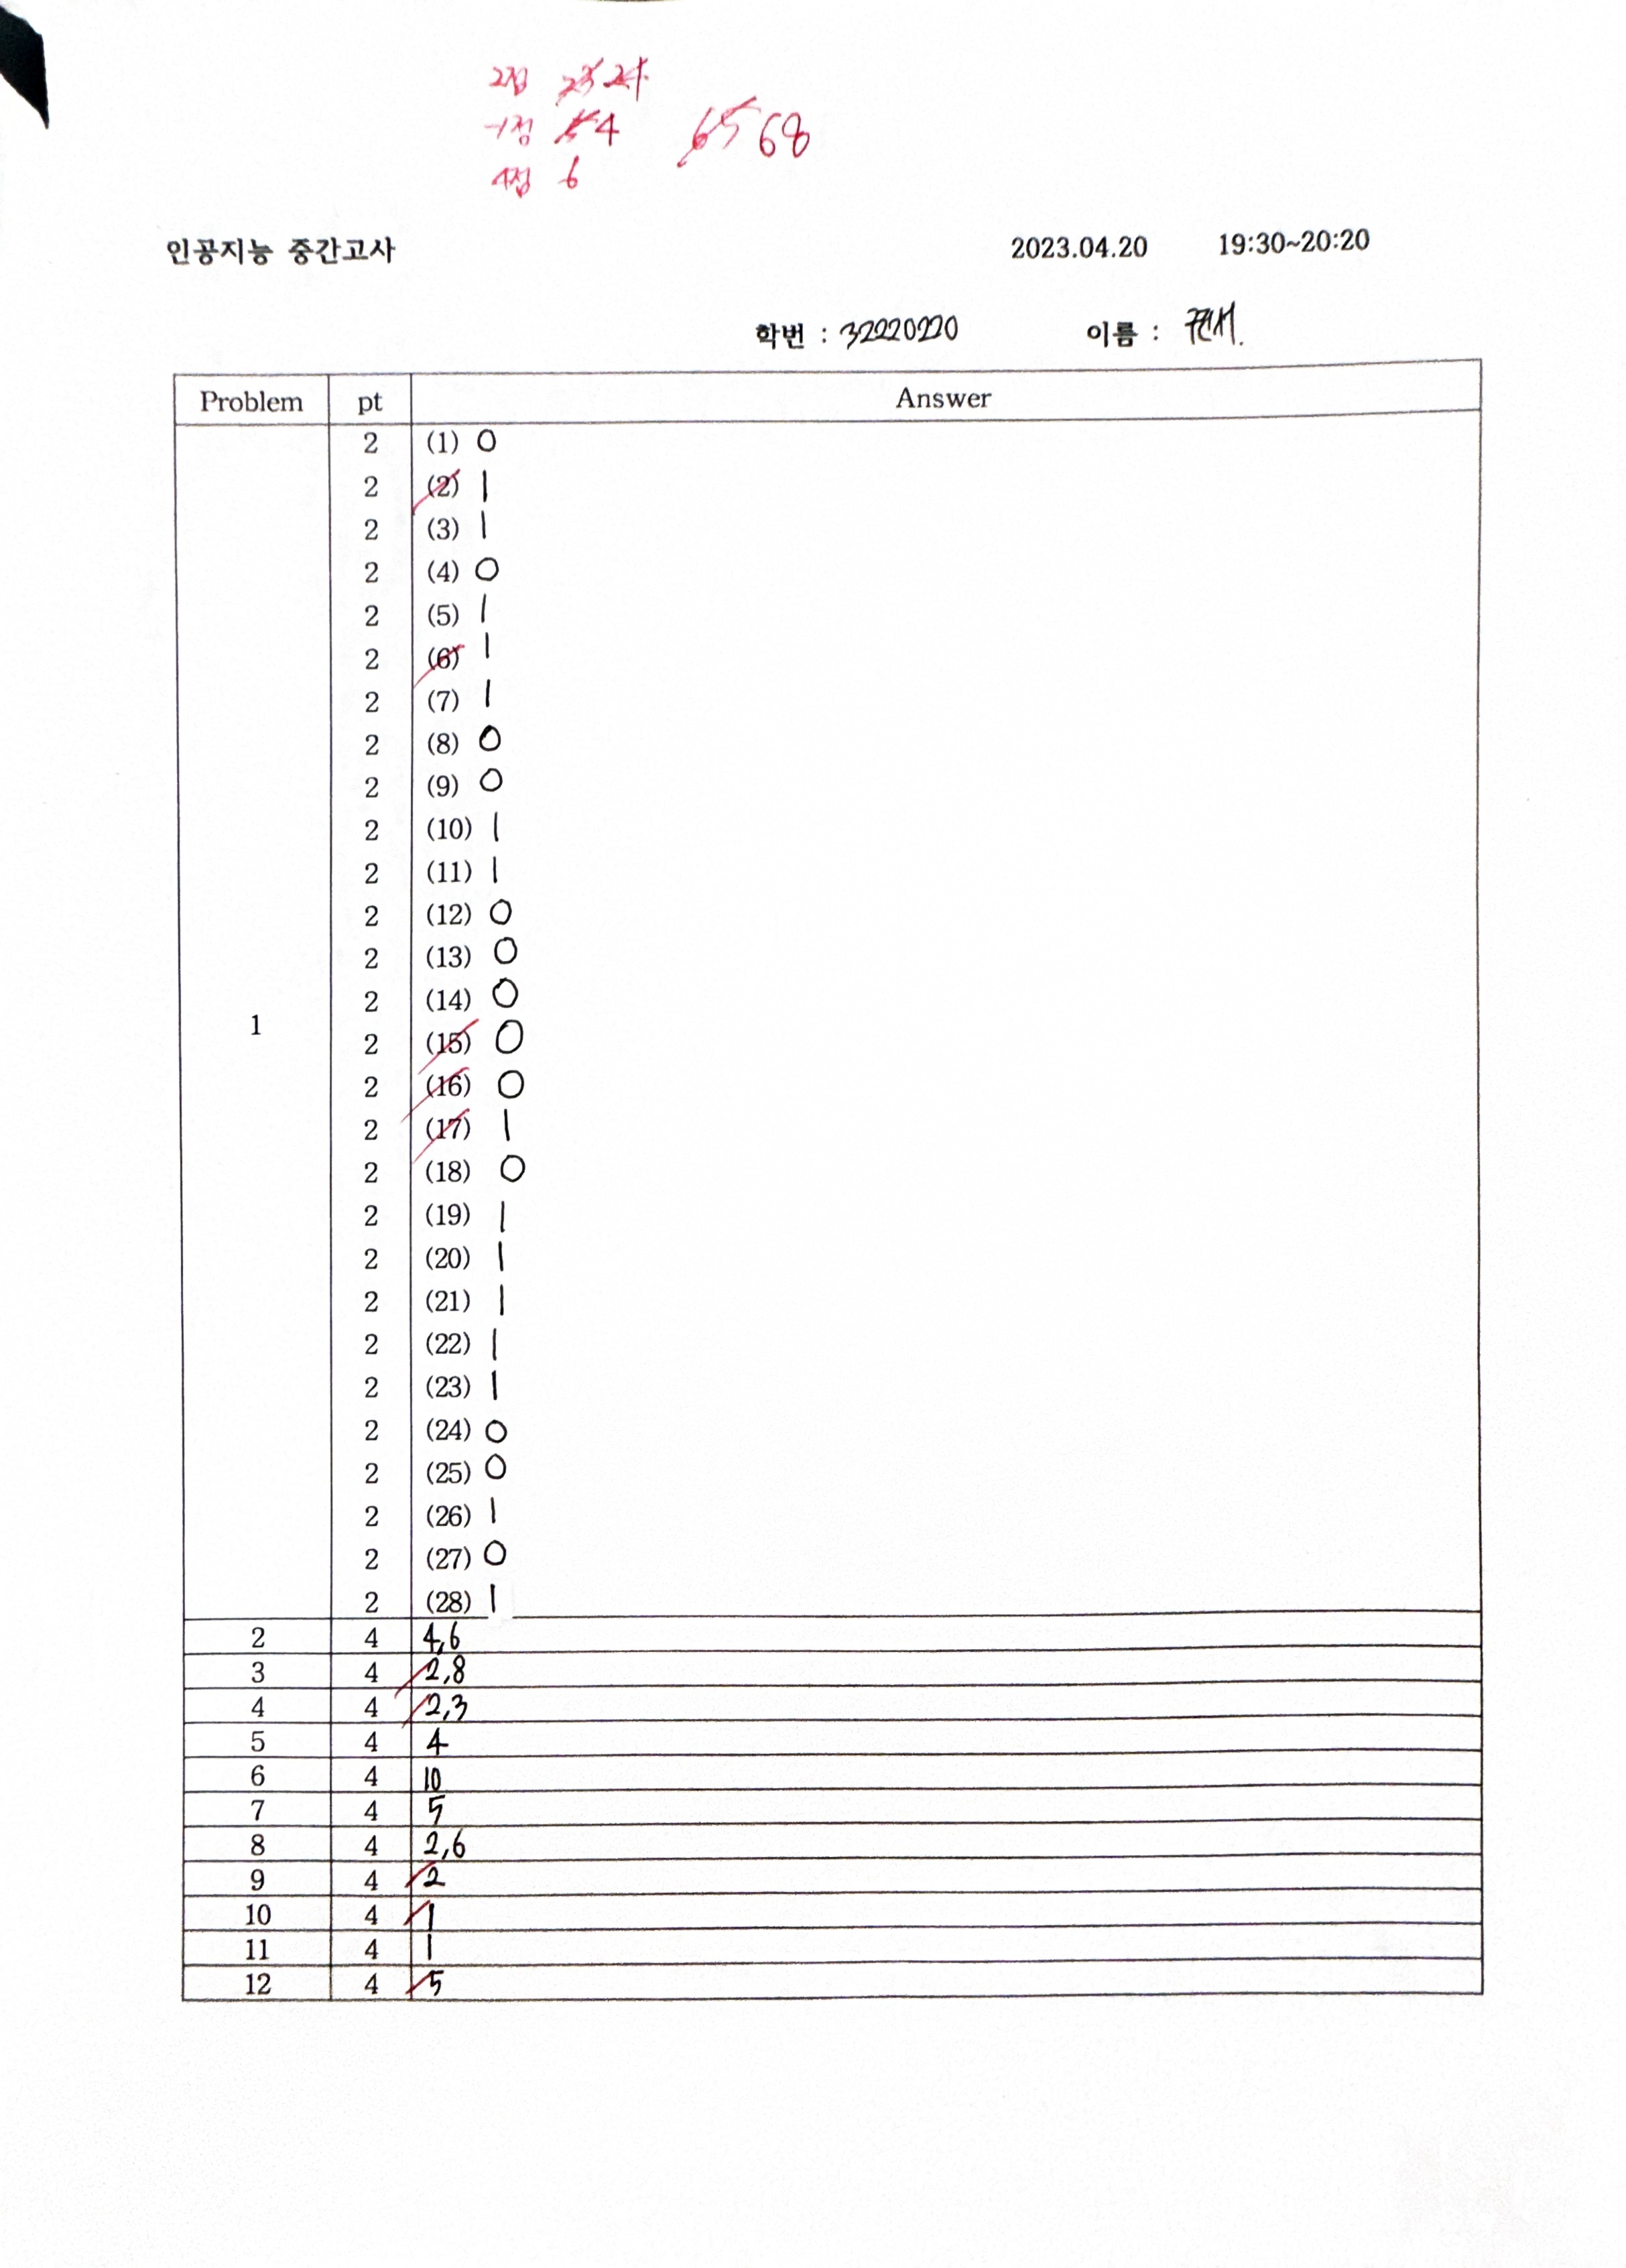 2점 23 24
-1점 5 4 65 68
4점 6
인공지능 중간고사 2023.04.20 19:30~20:20
학번 : 32220220 이름 :
Problem pt Answer
2 (1) 0
2 (2) 1
2 (3) 1
2 (4) 0
2 (5) 1
2 (6) 1
2 (7) 1
2 (8) 0
2 (9) 0
2 (10) 1
2 (11) 1
2 (12) 0
2 (13) 0
2 (14) 0
1 2 (15) 0
2 (16) 0
2 (17) 1
2 (18) 0
2 (19) 1
2 (20) 1
2 (21) 1
2 (22) 1
2 (23) 1
2 (24) 0
2 (25) 0
2 (26) 1
2 (27) 0
2 (28) 1
2 4 4,6
3 4 2,8
4 4 2,3
5 4 4
6 4 10
7 4 5
8 4 2,6
9 4 2
10 4 1
11 4 1
12 4 5